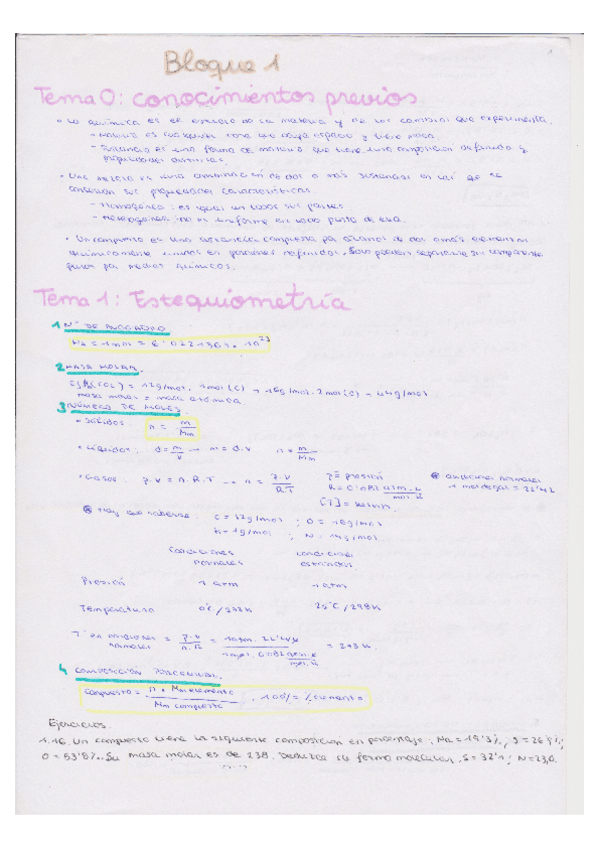 Bloque 1
Tema 0: Conocimientos previos
• La química es el estudio de la materia y de los cambios que experimenta.
- Materia es cualquier cosa que ocupa espacio y tiene masa.
- Sustancia es una forma de materia que tiene una composición definida y
propiedades distintivas.
• Una mezcla es una combinación de dos o más sustancias en las que se
conservan sus propiedades características.
- Homogénea: es igual en todas sus partes
- Heterogénea: no es uniforme en todo punto de ella.
• Un compuesto es una sustancia compuesta por átomos de dos o más elementos
químicamente unidos en proporciones definidas. Solo pueden separarse sus componentes
puros por medios químicos.
Tema 1: Estequiometría
1. Nº DE AVOGADRO
Na = 1 mol = 6'0221367 · 10²³
2 MASA MOLAR.
(CO₂) = 12g/mol · 1mol (C) + 16g/mol · 2mol (O) = 44g/mol
masa molar = masa atómica
3 NÚMERO DE MOLES.
• Sólidos: n = m/Mm
• Líquidos: d = m/V → m = d·V n = m/Mm
• Gases: P·V = n·R·T → n = P·V/R·T P = presión R = 0'082 atm·L/mol·K [T] = Kelvin * condiciones normales 1 mol de gas = 22'4L
* Hay que saberse: C = 12g/mol ; O = 16g/mol
H = 1g/mol ; N = 14g/mol.
Condiciones normales condiciones estándar
Presión 1 atm 1 atm
Temperatura 0°C/273K 25°C/298K
T en condiciones normales = P·V/n·R = 1atm·22'4L/1mol·0'082 atm·L/mol·K = 273K
4 COMPOSICIÓN PORCENTUAL.
Compuesto = n · Mm elemento/Mm compuesto · 100% = % elemento
Ejercicios.
1.16. Un compuesto tiene la siguiente composición en porcentaje: Na = 19'3%, S = 26'9%;
O = 53'8%. Su masa molar es de 238. Deduzca su forma molecular. S = 32'1; N = 23,0.